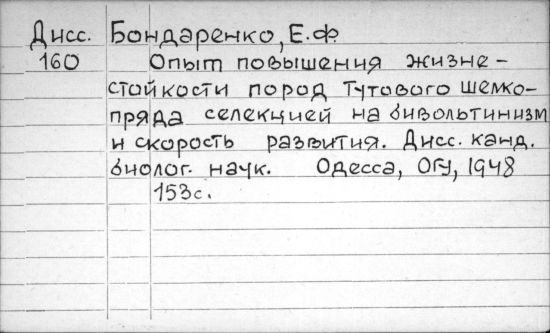 Дисс. Бондаренко, Е.Ф
160 Опыт повышения жизне-
стойкости пород тутового шелко-
пряда селекцией на бивольтинизм
и скорость развития. Дисс. канд.
биолог. наук. Одесса, ОГУ, 1948
153с.